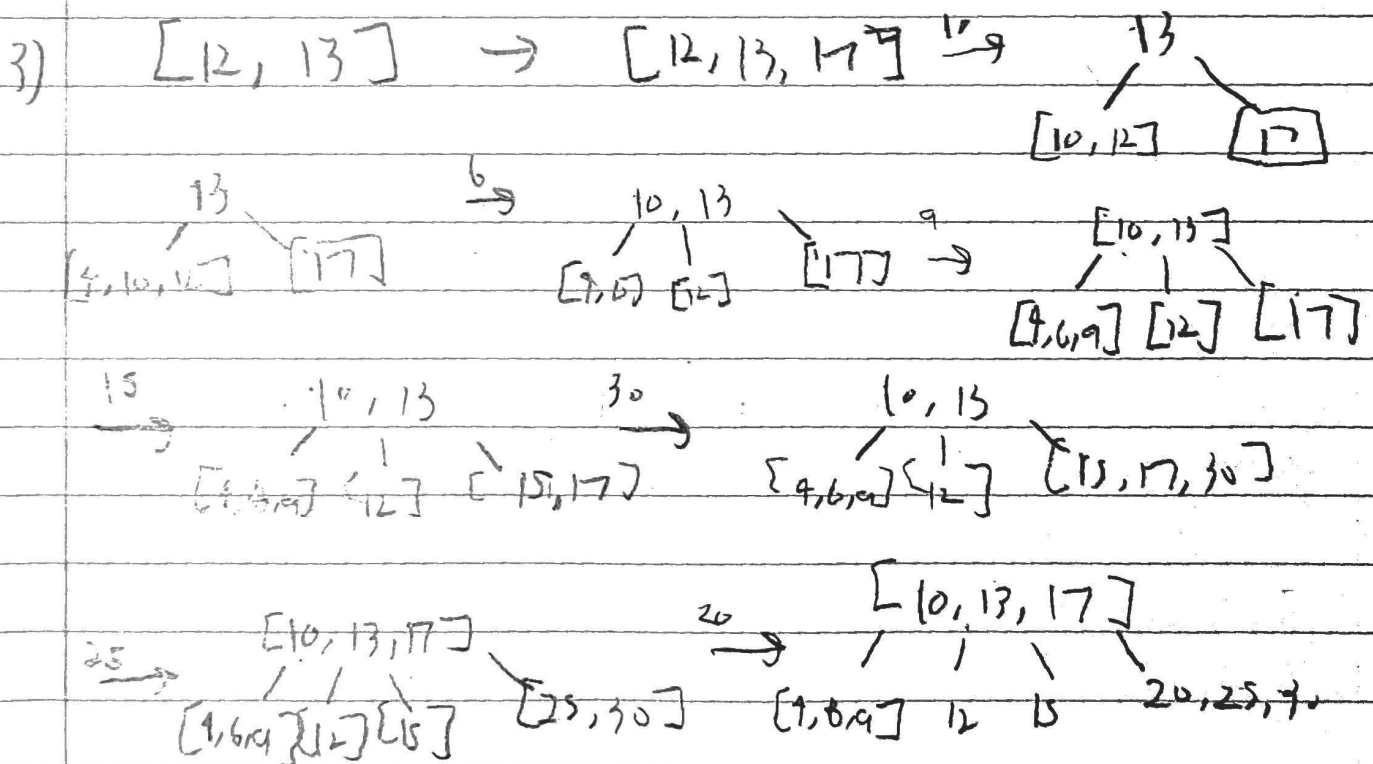 3) [12, 13] → [12, 13, 17] 10→ 13
[10, 12] 17
13 6→ 10, 13 9→ [10, 13]
[4, 10, 12] [17] [4, 6] [12] [17] [4,6,9] [12] [17]
15→ 10, 13 30→ 10, 13
[4,6,9] [12] [15, 17] [4,6,9] [12] [15, 17, 30]
25→ [10, 13, 17] 20→ [10, 13, 17]
[4,6,9] [12] [15] [25, 30] [4,6,9] 12 15 20, 25, 30